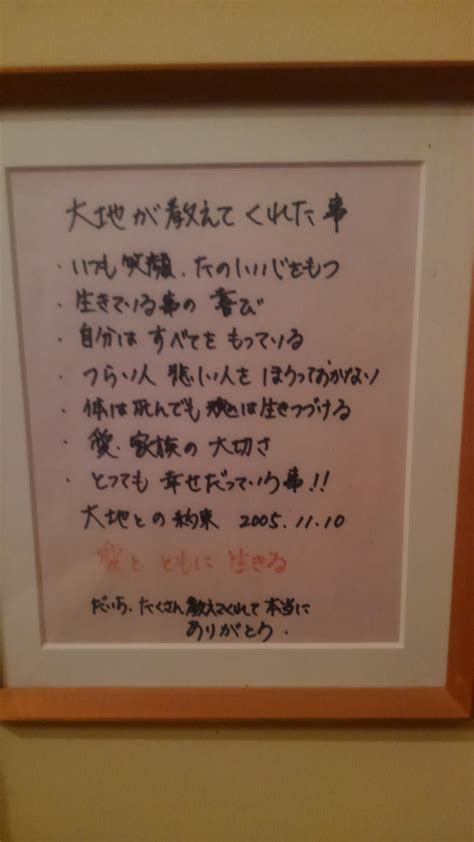 大地が教えてくれた事
・いつも笑顔、たのしい心をもつ
・生きている事の喜び
・自分は すべてを もっている
・つらい人 悲しい人を ほうっておかない
・体は死んでも 魂は生きつづける
・愛、家族の大切さ
・とっても 幸せだっていう事!!
大地との約束 2005.11.10
愛と ともに 生きる
だいち、たくさん教えてくれて本当に
ありがとう.